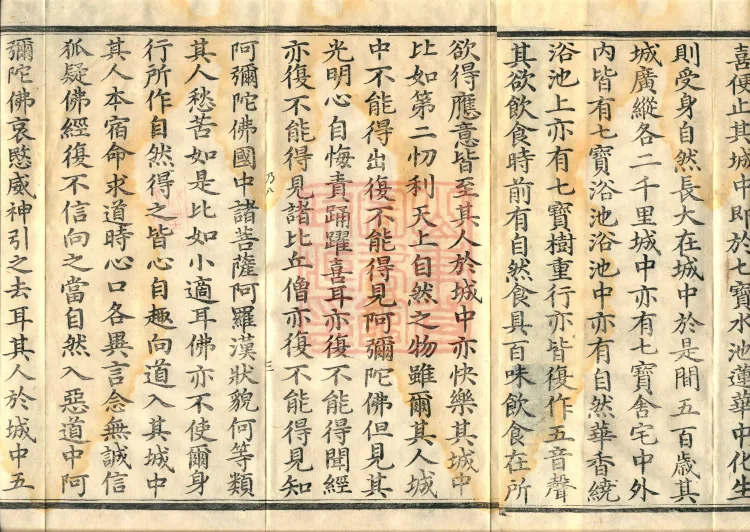 喜便止其城中即於七寶水池蓮華中化生
則受身自然長大在城中於是間五百歲其
城廣縱各二千里城中亦有七寶舍宅中外
内皆有七寶浴池浴池中亦有自然華香繞
浴池上亦有七寶樹重行亦皆復作五音聲
其欲飲食時前有自然食具百味飲食在所
欲得應意皆至其人於城中亦快樂其城中
比如第二忉利天上自然之物雖爾其人城
中不能得出復不能得見阿彌陀佛但見其
光明心自悔責踊躍喜耳亦復不能得聞經
亦復不能得見諸比丘僧亦復不能得見知
乃八
三
阿彌陀佛國中諸菩薩阿羅漢狀貌何等類
其人愁苦如是比如小適耳佛亦不使爾身
行所作自然得之皆心自趣向道入其城中
其人本宿命求道時心口各異言念無誠信
狐疑佛經復不信向之當自然入惡道中阿
彌陀佛哀愍威神引之去耳其人於城中五